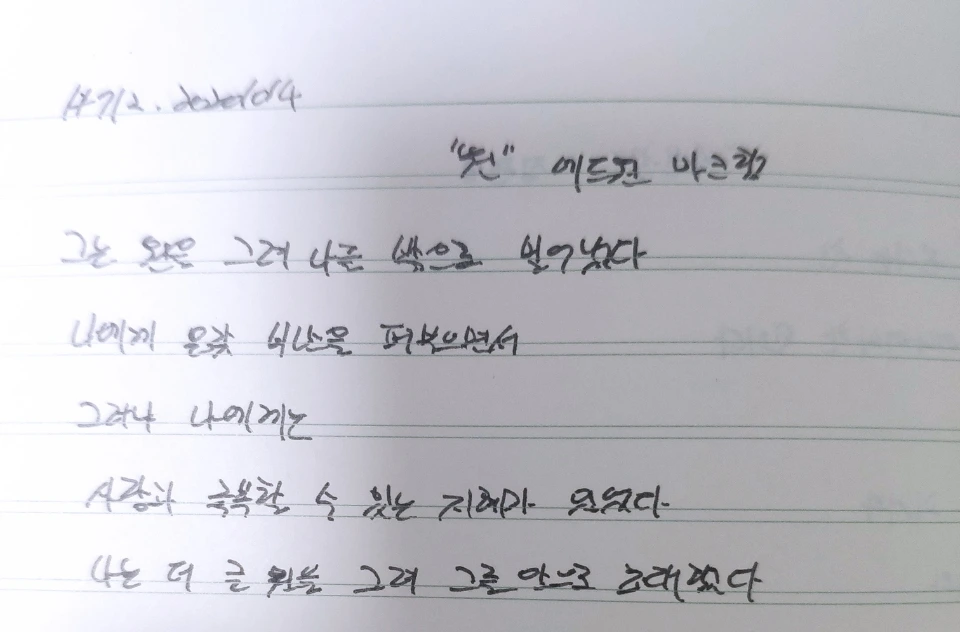 "원" 에드윈 마크햄
그는 원을 그려 나를 밖으로 밀어냈다
나에게 온갖 비난을 퍼부으면서
그러나 나에게는
사랑과 극복할 수 있는 지혜가 있었다
나는 더 큰 원을 그려 그를 안으로 초대했다